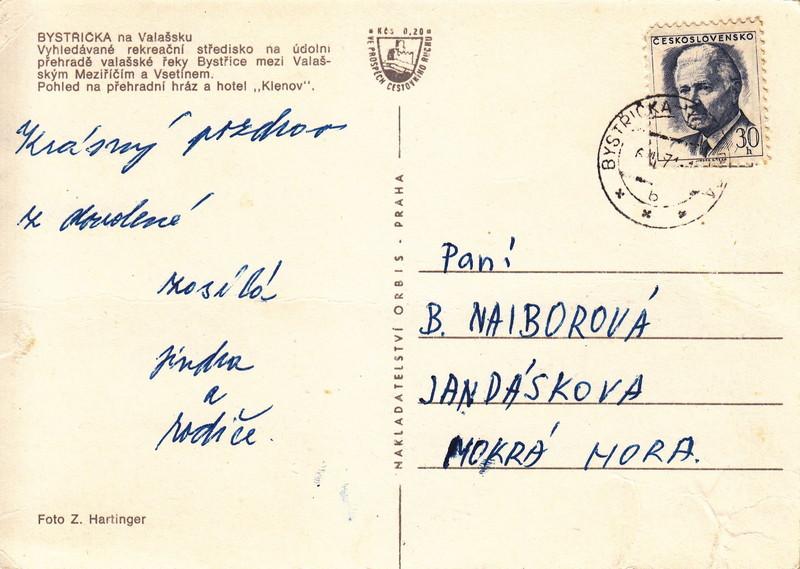 BYSTŘIČKA na Valašsku
Vyhledávané rekreační středisko na údolní
přehradě valašské řeky Bystřice mezi Valaš-
ským Meziříčím a Vsetínem.
Pohled na přehradní hráz a hotel „Klenov“.
Krásný pozdrav
z dovolené
zasílá
Jindra
a
rodiče.
Foto Z. Hartinger
Kčs 0,20
VE PROSPĚCH CESTOVNÍHO RUCHU
NAKLADATELSTVÍ ORBIS - PRAHA
ČESKOSLOVENSKO
30
h
BYSTŘIČKA
b
Paní
B. NAIBOROVÁ
JANDÁSKOVA
MOKRÁ HORA.